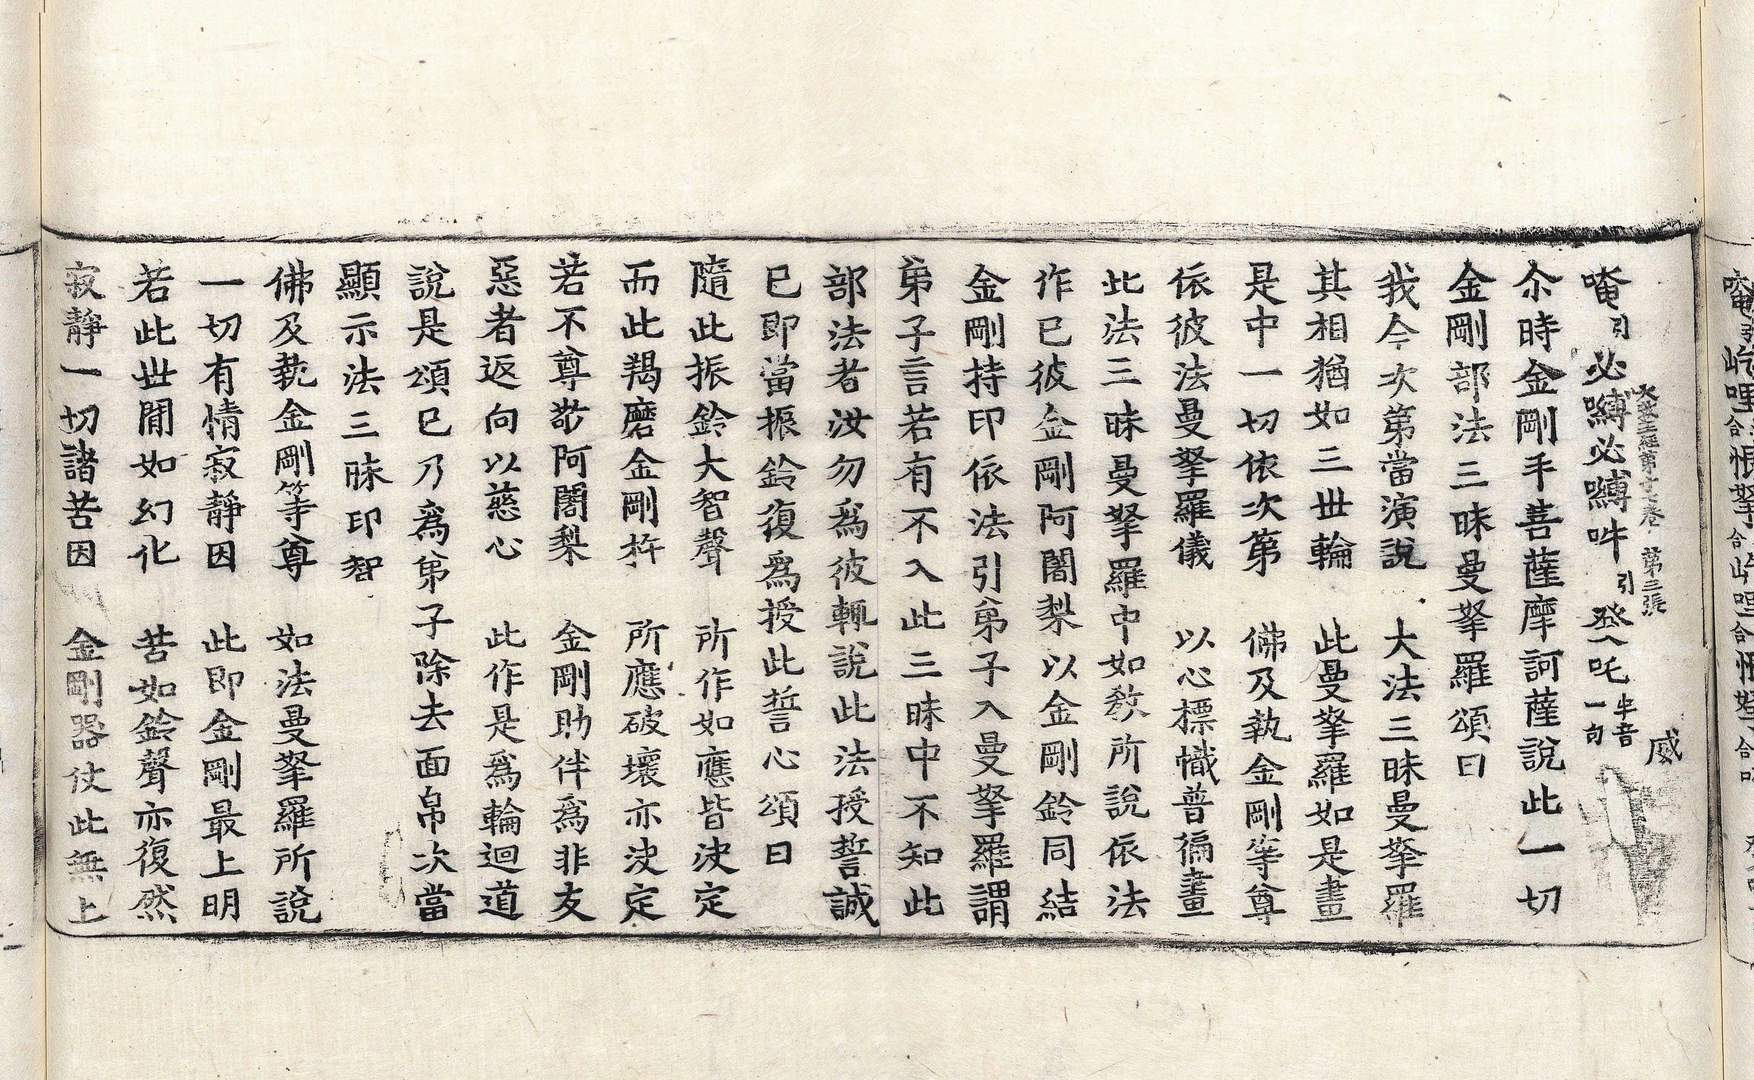 唵引必嚩必嚩吽引癹吒半音一句
大敎王經第十七卷 第三張 威
尒時金剛手菩薩摩訶薩說此一切
金剛部法三昧曼拏羅頌曰
我今次第當演說 大法三昧曼拏羅
其相猶如三世輪 此曼拏羅如是畫
是中一切依次第 佛及執金剛等尊
依彼法曼拏羅儀 以心標幟普徧畫
此法三昧曼拏羅中如敎所說依法
作已彼金剛阿闍梨以金剛鈴同結
金剛持印依法引弟子入曼拏羅謂
弟子言若有不入此三昧中不知此
部法者汝勿爲彼輒說此法授誓誡
已即當振鈴復爲授此誓心頌曰
隨此振鈴大智聲 所作如應皆決定
而此羯磨金剛杵 所應破壞亦決定
若不尊敬阿闍梨 金剛助伴爲非友
惡者返向以慈心 此作是爲輪迴道
說是頌已乃爲弟子除去面帛次當
顯示法三昧印智
佛及執金剛等尊 如法曼拏羅所說
一切有情寂靜因 此即金剛最上明
若此世間如幻化 苦如鈴聲亦復然
寂靜一切諸苦因 金剛器仗此無上